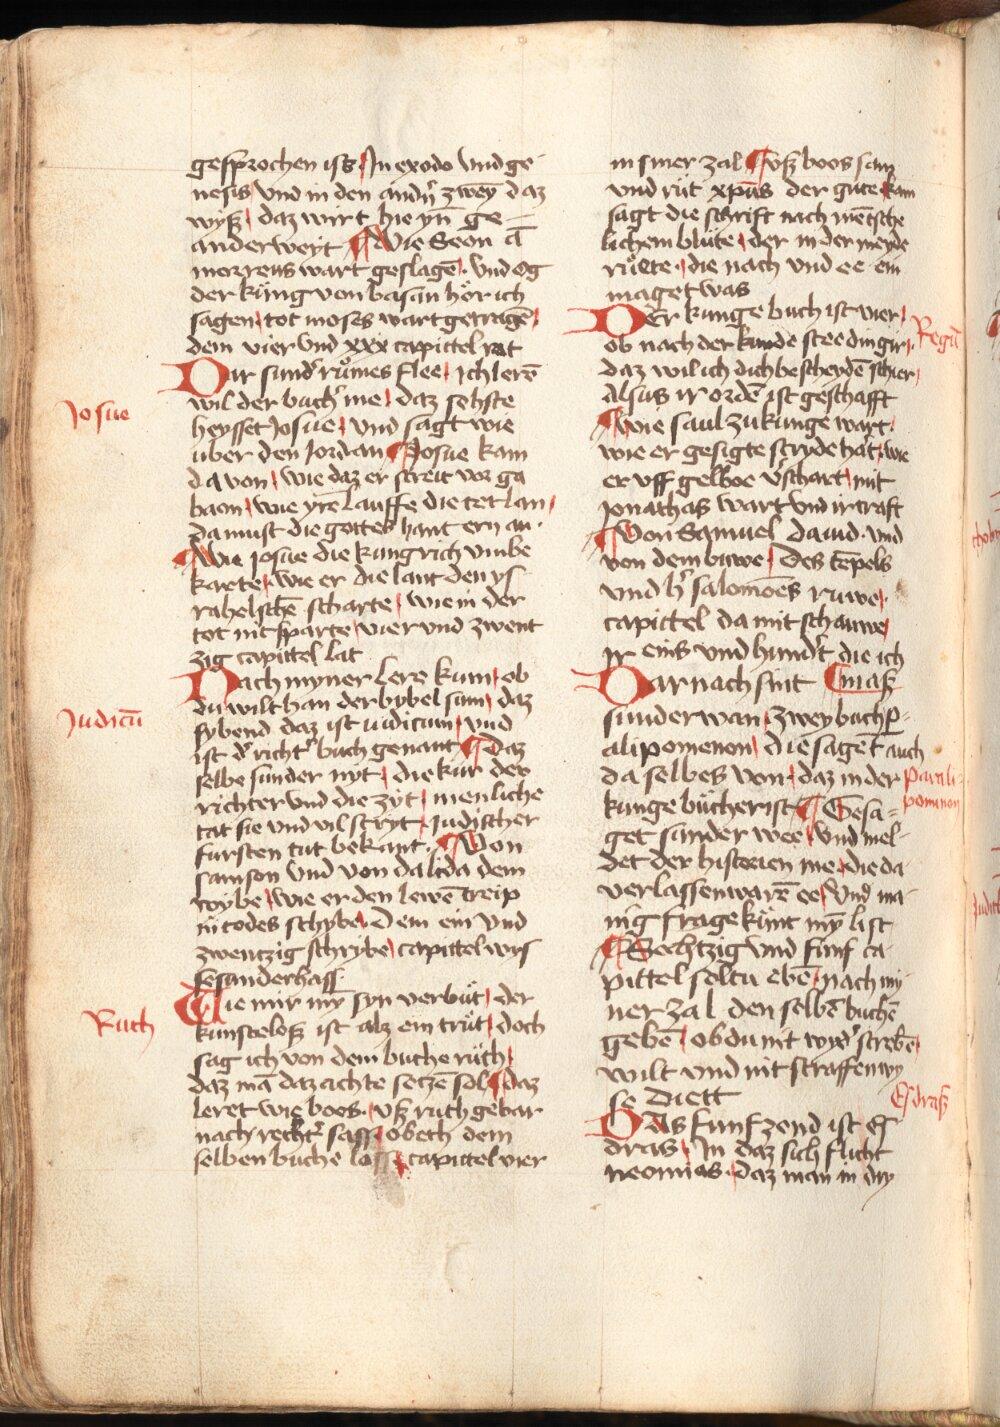 gesprochen ist / In exodo vnd ge-
nesis / vnd in den andn̄ zwey daz
wyß / daz wirt hie yn̄ ge-
anderweyt ¶ Wie Seon a
morreus wart geslagē / vnd og
der kùng von basan hör ich
sagen / tot moses wart getragē /
dem vier vnd xxx capittel rat
Dir sund' růmes flee / ich lerē
wil der buch' me / daz sehste
Josue
heysset Josue / vnd sagt wie
uber den Jordan ¶ Josue kam
da von / wie daz er streit vor ga
baon / wie yrē lauffe die tet lan /
da must die gottes hant ern an ·
¶ Wie josue die kungrich vmbe
karte / wie er die lant den ys
rahelschē scharte / wie in der
tot nit sparte / vier vnd zwent
zig capittel lat
Nach myner lere kum / ob
du wilt han der bybel sum / daz
Judicū
sybend daz ist iudicum / vnd
ist d' richt' buch genant ¶ Daz
selbe sunder nyt / die kur der
richter vnd die zyt / menliche
tat sie vnd vil stryt / Judischer
fursten tut bekant · ¶ Von
samson vnd von dalida dem
wybe / wie er den lewē treip
in todes schybe / Dem ein vnd
zwentzig schribe / capittel wys
sesunderhass
Wie mir my̅ syn verbùt / der
Ruth
kunsteloß ist alz ein trùt / doch
sag ich von dem buche rùth /
daz mā daz achte setzē sol ¶ daz
leret wie boos / vß ruth gebar
nach recht' sass / obeth dem
selben buche lass / capittel vier
in siner zal ¶ vß boos sam
vnd rùt xp̄us der gute kam
sagt die schrift nach mētsche
lichem blùte / der in der meyde
růete / die nach vnd ee ein
maget was
Der kunge buch ist vier /
Regū
ob nach der kunde stee din gir /
daz wil ich dich bescheydē schier /
Alsus ir ordē ist geschafft
¶ Wie saul zu kunge wart /
wie er gesigte stryde hat / wie
er vff gelboe v'schart / mit
jonathas wart vnd ir craft
¶ Von Samuel dauid · vnd
von dem buwe / Des tēpels
vnd h' salomōēs ruwe /
capittel da mit schauwe /
ir eins vnd hund't die ich
Dar nach sint ¶ maß
sunder wan / zwey buch p-
alipomenon / die sagēt auch
da selbes von / daz in der
parali
pomnon
kunge bùcher ist ¶ Gesa-
get sunder wee / vnd mel-
det der historien me / die da
verlassen warē ee / Vnd ma-
nig frage kùnt my̅ list
¶ Sechtzig vnd funf ca
pittel soltu ebē / nach mi-
ner zal den selbē buchē
gebē / ob du nit wyd' strebē /
wilt vnd nit straffen wy
se Diett
Esdraß
Das funfzend ist es
dras / In daz sich flicht
neomias / daz man in dry